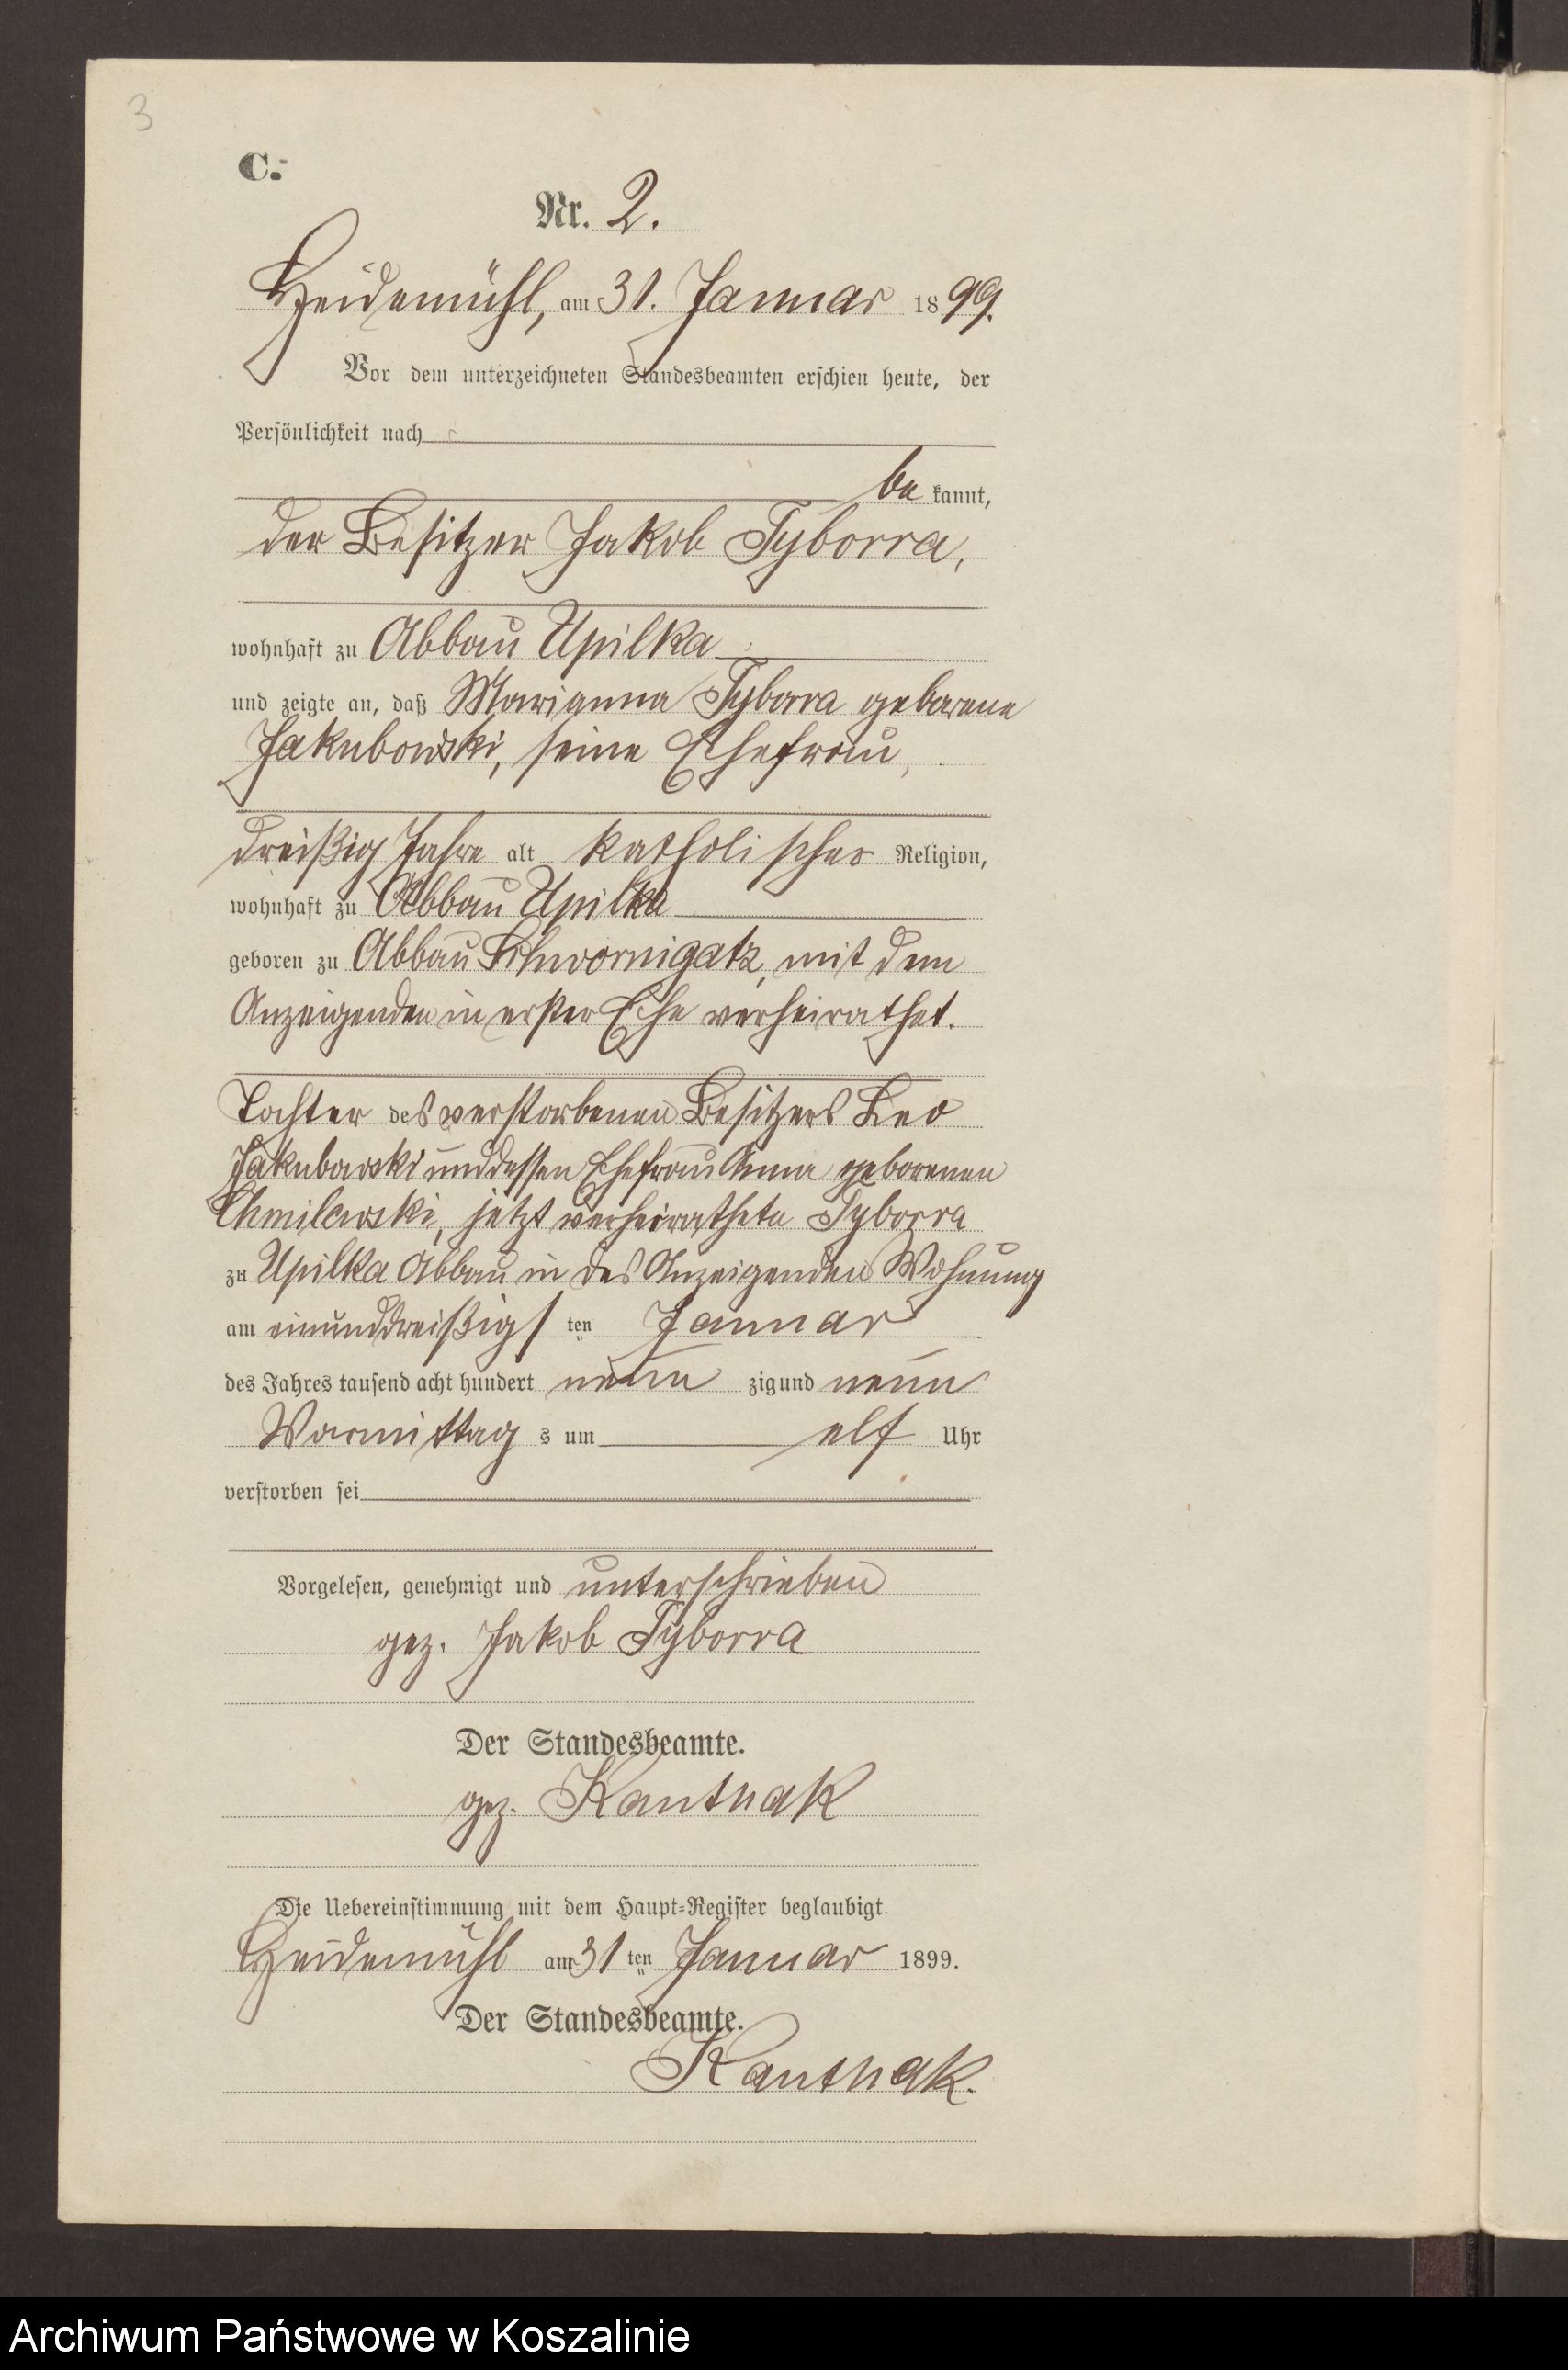 3
C.
Nr. 2.
Heidemühl, am 31. Januar 1899.
Vor dem unterzeichneten Standesbeamten erschien heute, der
Persönlichkeit nach
be kannt,
der Besitzer Jakob Tyborra,
wohnhaft zu Abbau Upilka
und zeigte an, daß Marianna Tyborra geborene
Jakubowski, seine Ehefrau,
dreißig Jahre alt katholischer Religion,
wohnhaft zu Abbau Upilka
geboren zu Abbau Schwornigatz, mit dem
Anzeigenden in erster Ehe verheirathet.
Tochter des verstorbenen Besitzers Leo
Jakubowski und dessen Ehefrau Anna geborenen
Chmilewski, jetzt verheirathete Tyborra
zu Upilka Abbau in des Anzeigenden Wohnung
am einunddreißigsten Januar
des Jahres tausend acht hundert neun zig und neun
Vormittag s um elf Uhr
verstorben sei
Vorgelesen, genehmigt und unterschrieben
gez. Jakob Tyborra
Der Standesbeamte.
gez. Kanthak
Die Uebereinstimmung mit dem Haupt=Register beglaubigt.
Heidemühl am 31 ten Januar 1899.
Der Standesbeamte.
Kanthak.
Archiwum Państwowe w Koszalinie